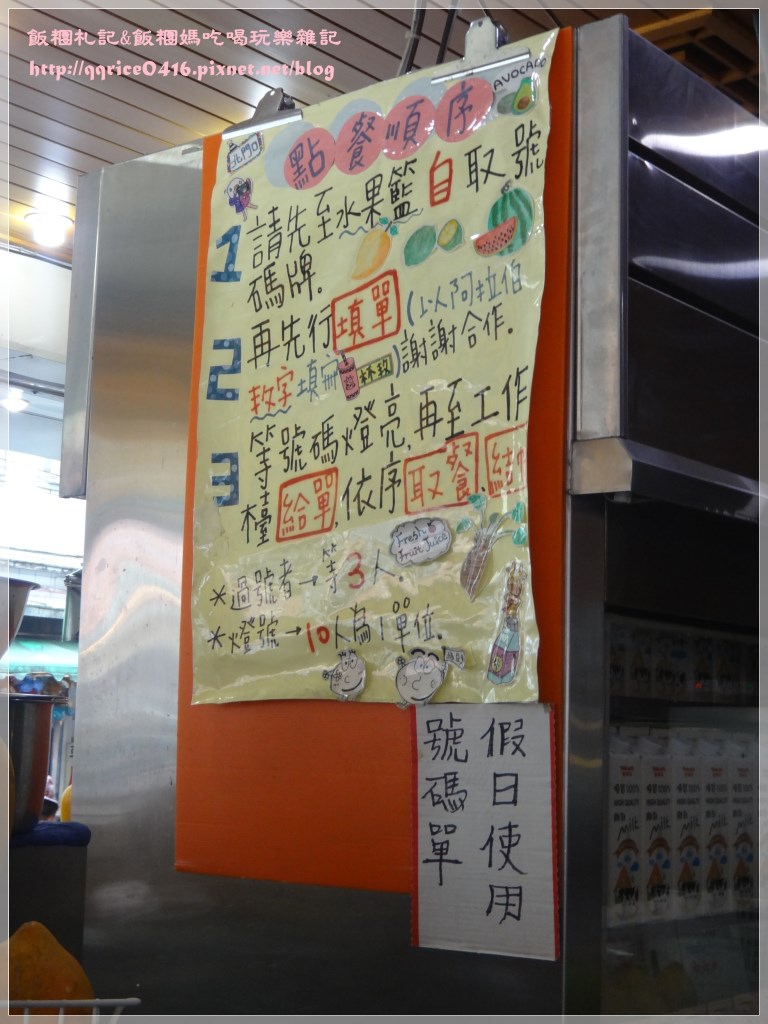 飯糰札記&飯糰媽吃喝玩樂雜記
http://qqrice0416.pixnet.net/blog
AVOCADO
點餐順序
北門口
1 請先至水果籃自取號
碼牌.
2 再先行填單(以阿拉伯
數字填寫杯數)謝謝合作.
3 等號碼燈亮,再至工作
檯給單,依序取餐.結
Fresh
Fruit Juice
*過號者→等3人.
*燈號→10人為1單位.
假日使用
號碼單